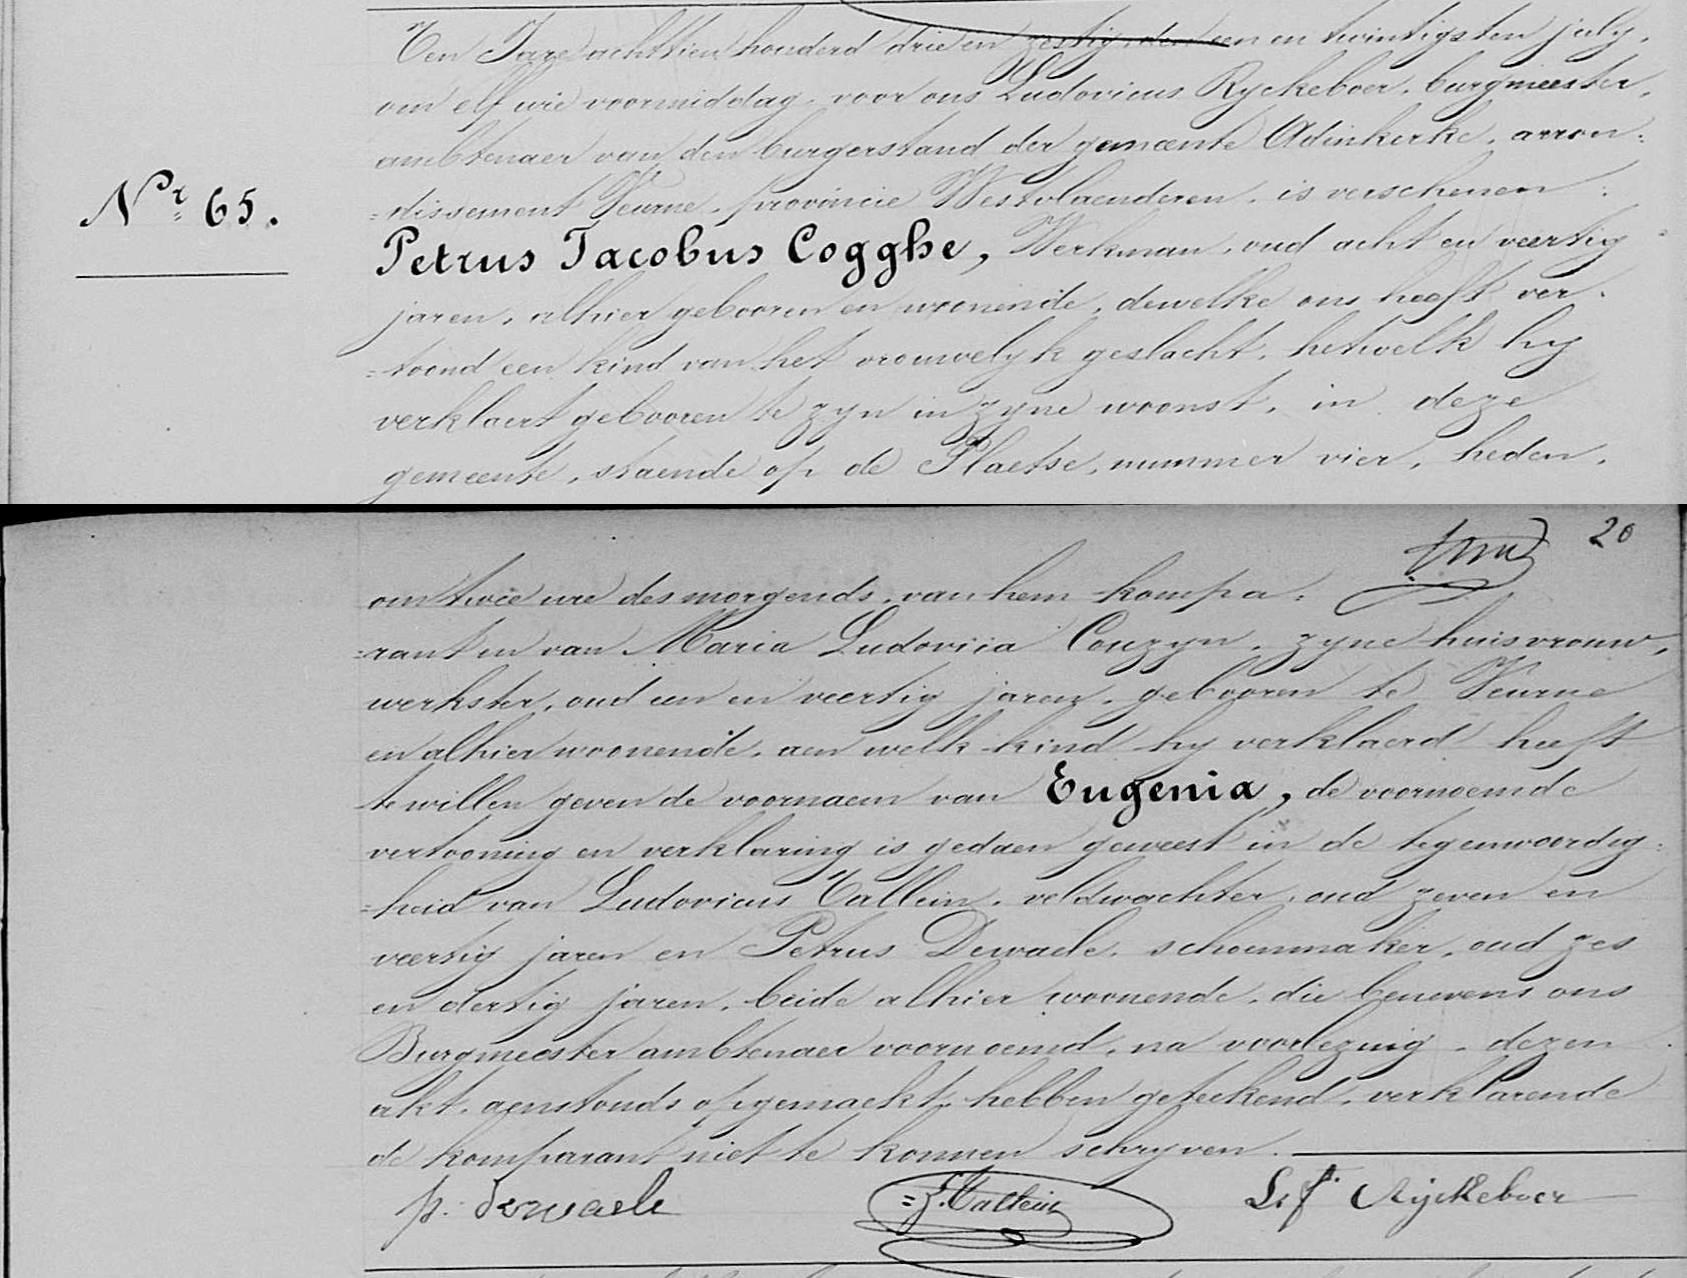 Ten Jare achttien honderd drie en zestig, den een en twintigsten july,
om elf ure voormiddag, voor ons Ludovicus Ryckeboer, burgmeester,
ambtenaer van den burgerstand der gemeente Adinkerke, arron=
Nr 65.
=dissement Veurne, provincie Westvlaenderen, is verschenen :
Petrus Jacobus Cogghe, Werkman, oud acht en veertig
jaren, alhier gebooren en woonende, dewelke ons heeft ver=
=toond een kind van het vrouwelyk geslacht, hetwelk hy
verklaert gebooren te zyn in zyne woonst, in deze
gemeente, staende op de Plaetse, nummer vier, heden,
20
om twee ure des morgends, van hem kompa=
=rant en van Maria Ludovica Couzyn, zyne huisvrouw,
werkster, oud een en veertig jaren, gebooren te Veurne
en alhier woonende, aen welk kind hy verklaerd heeft
te willen geven de voornaem van Eugenia, de voornoemde
vertooning en verklaring is gedaen geweest in de tegenwoordig=
=heid van Ludovicus Callein, veldwachter, oud zeven en
veertig jaren en Petrus Dewaele, schoenmaker, oud zes
en dertig jaren, beide alhier woonende, die benevens ons
Burgmeester ambtenaer voornoemd, na voorlezing dezen
akt, aenstonds opgemaekt, hebben geteekend, verklarende
de komparant niet te konnen schryven.
p. Dewaele L. Callein Ryckeboer